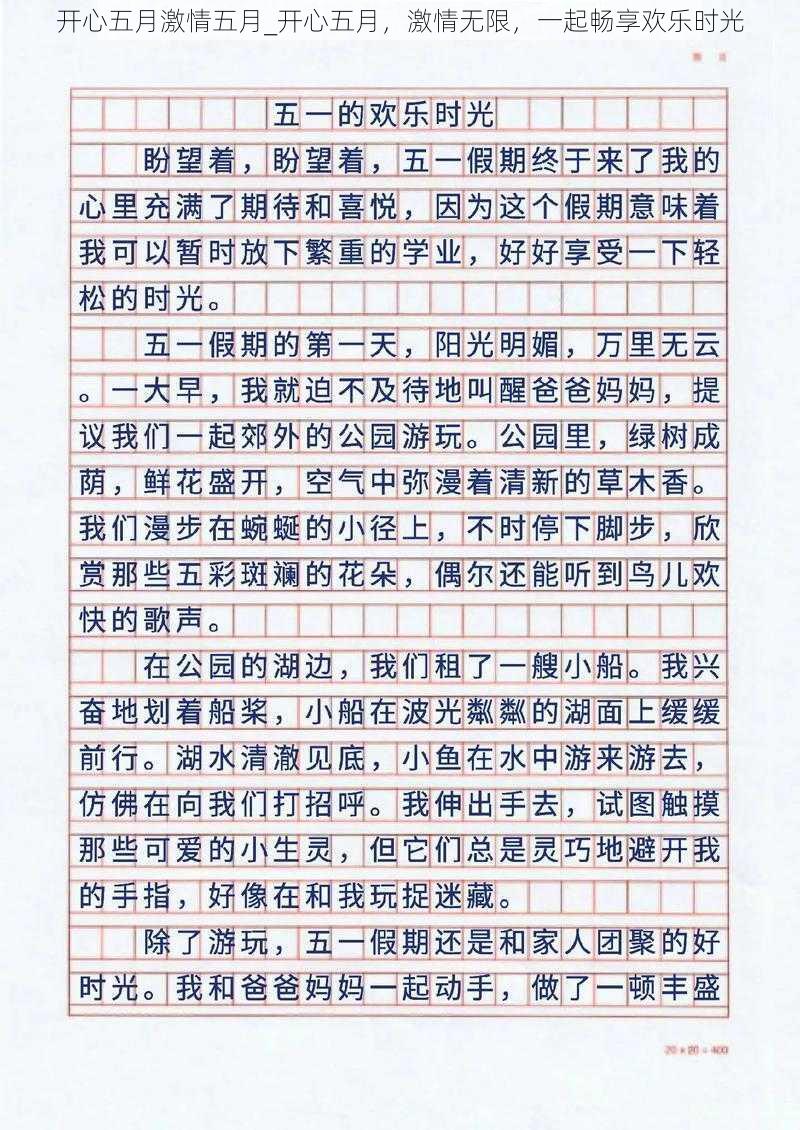 开心五月激情五月_开心五月，激情无限，一起畅享欢乐时光
五一的欢乐时光
盼望着，盼望着，五一假期终于来了我的
心里充满了期待和喜悦，因为这个假期意味着
我可以暂时放下繁重的学业，好好享受一下轻
松的时光。
五一假期的第一天，阳光明媚，万里无云
。一大早，我就迫不及待地叫醒爸爸妈妈，提
议我们一起郊外的公园游玩。公园里，绿树成
荫，鲜花盛开，空气中弥漫着清新的草木香。
我们漫步在蜿蜒的小径上，不时停下脚步，欣
赏那些五彩斑斓的花朵，偶尔还能听到鸟儿欢
快的歌声。
在公园的湖边，我们租了一艘小船。我兴
奋地划着船桨，小船在波光粼粼的湖面上缓缓
前行。湖水清澈见底，小鱼在水中游来游去，
仿佛在向我们打招呼。我伸出手去，试图触摸
那些可爱的小生灵，但它们总是灵巧地避开我
的手指，好像在和我玩捉迷藏。
除了游玩，五一假期还是和家人团聚的好
时光。我和爸爸妈妈一起动手，做了一顿丰盛
20×20=400